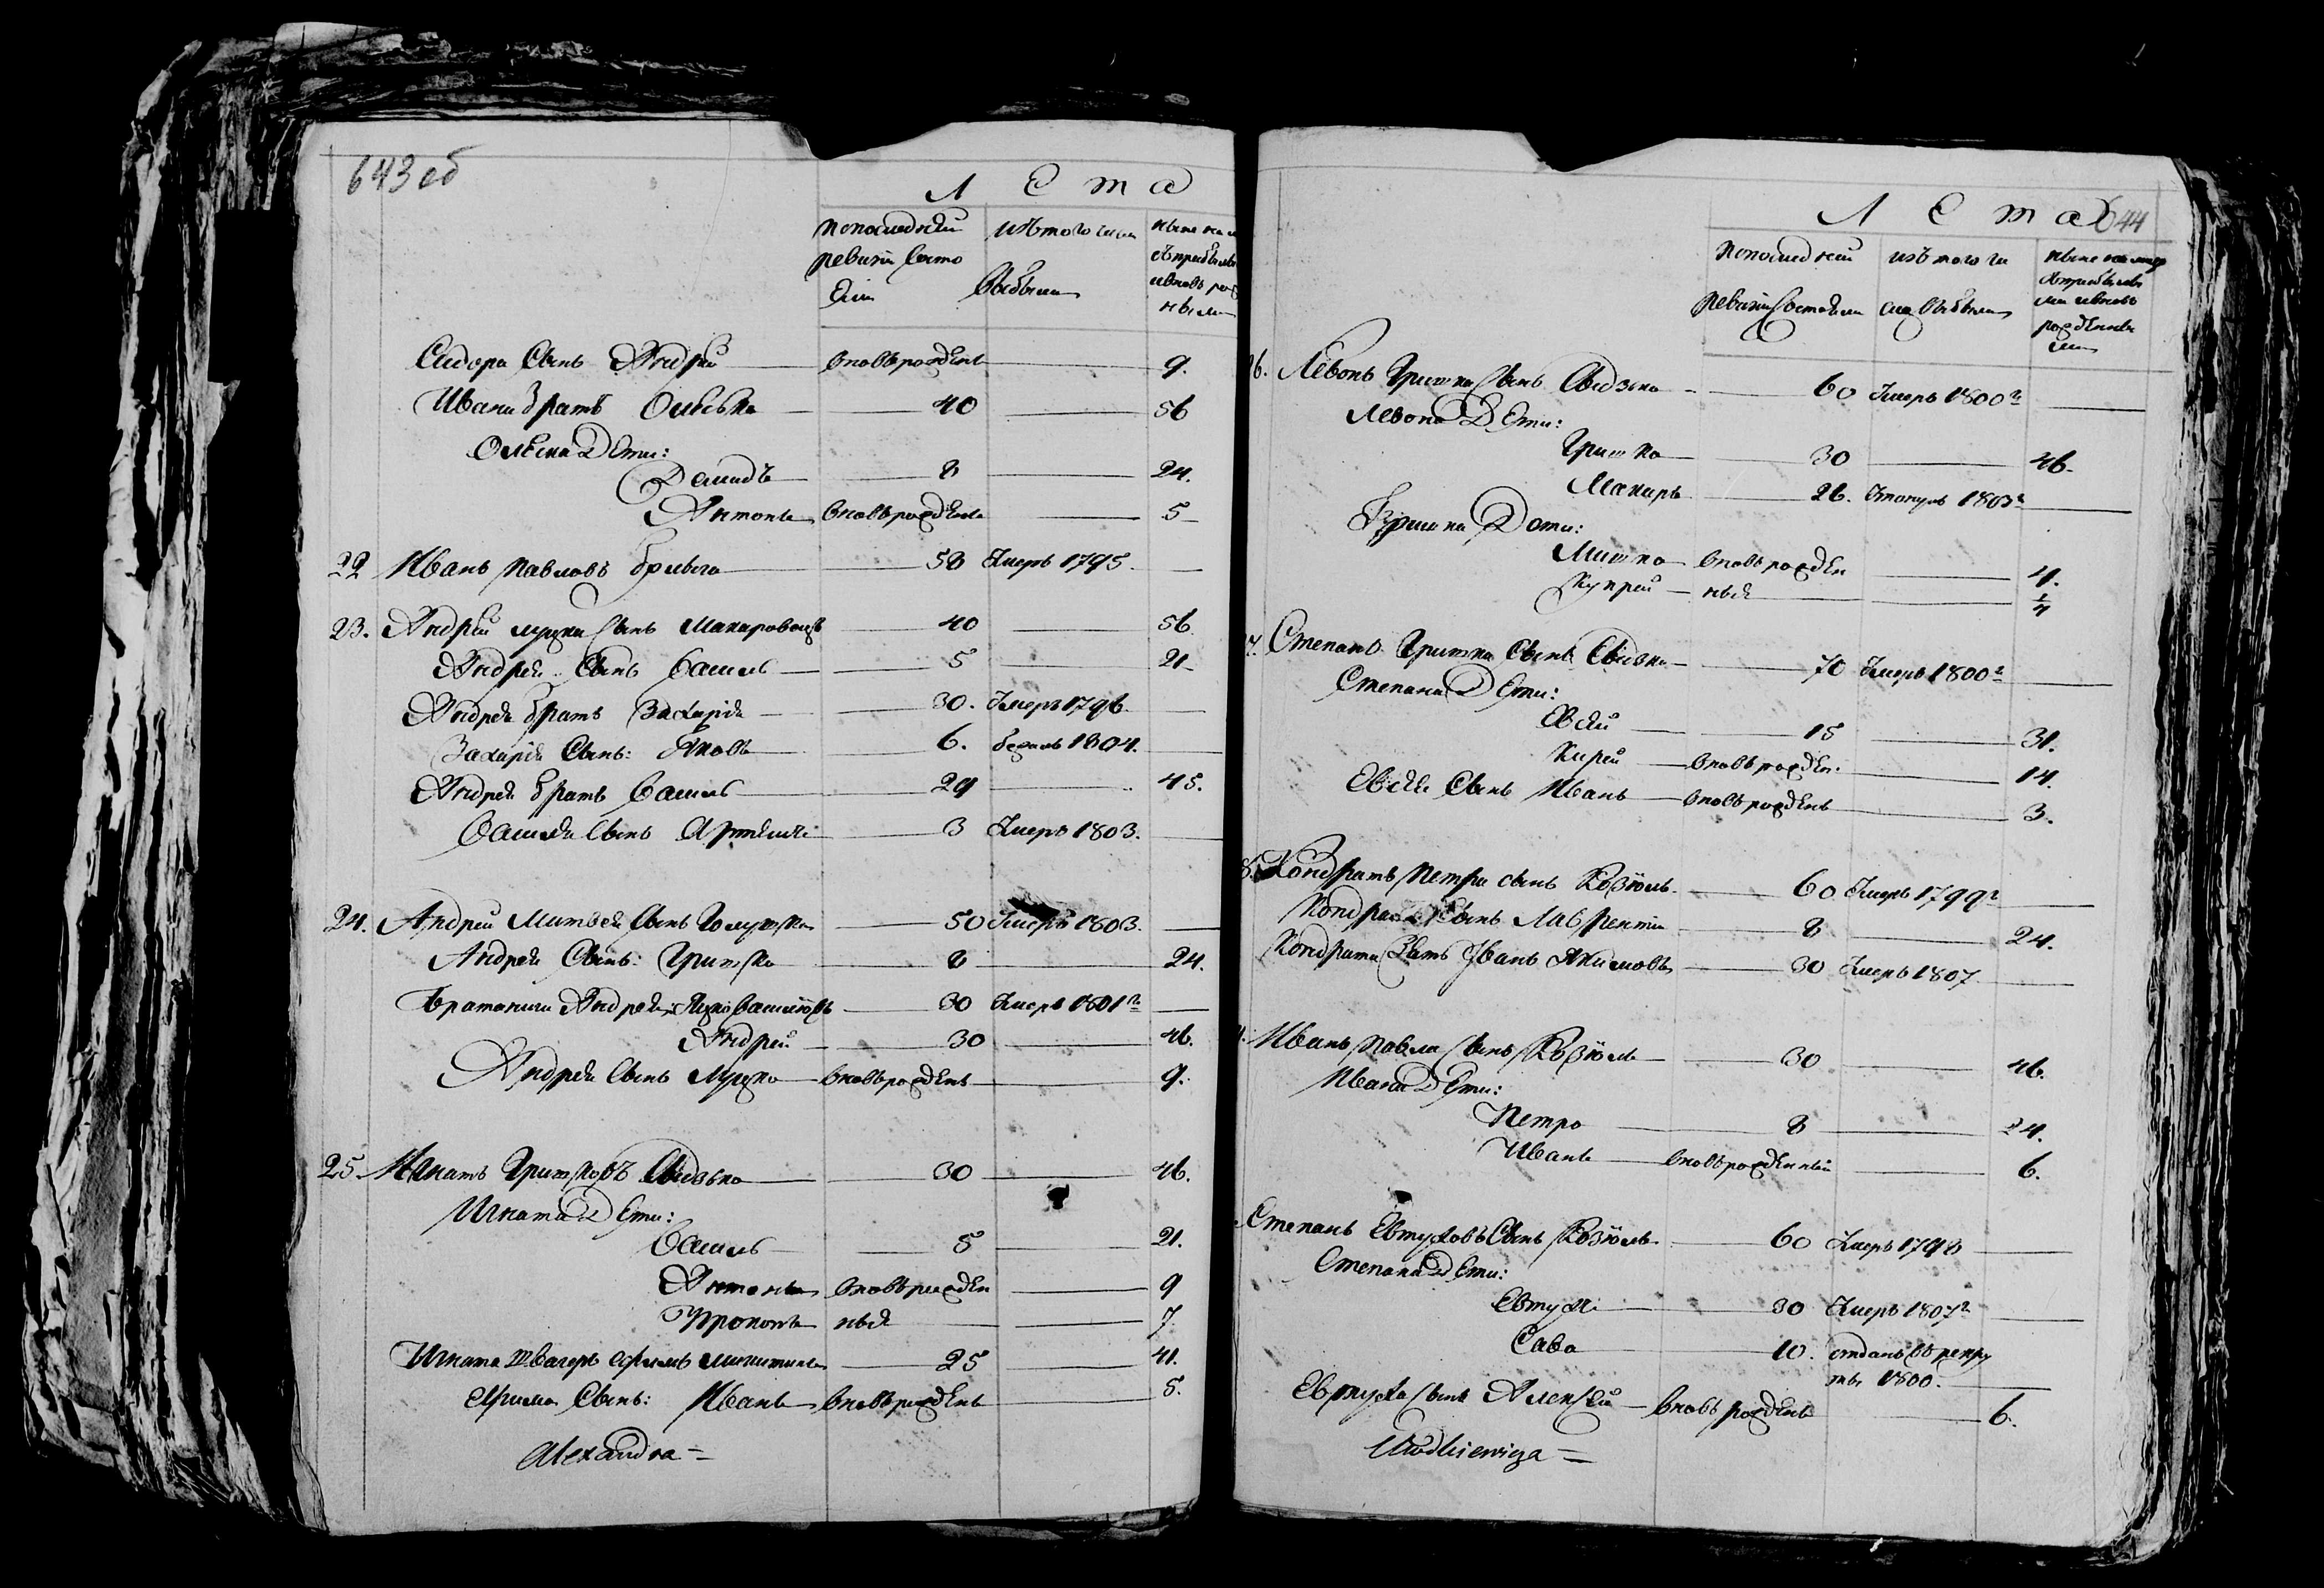 643 об
Л Е т а
по последней ревизiи состояли
изъ того числа выбыли
ныне на лицо съ прибылыми и вновь рожденными
Сидора Сынъ Андрей вновърожденъ 9.
Ивана братъ Олеська 40 56
Олеська Дети:
Демидъ 8 24.
Антонъ вновърожденъ 5
22 Иванъ Павловъ 58 Умеръ 1795.
23. Андрей Сынъ Макаровецъ 40 56
Андрея Сынъ Василь 5 21
Андрея братъ Захарiя 30. Умеръ 1796.
Захарiя Сынъ: Яковъ 6. бежалъ 1804.
Андрея братъ Василь 29 45.
Василя Сынъ Артемъ 3 Умеръ 1803.
24. Андрей Матвея Сынъ 50 Умеръ 1803.
Андрея Сынъ: Грицко 8 24.
Братаничи Андрея: 30 Умеръ 1801г
Андрей 30 46.
Андрея Сынъ вновърожденъ 9.
25. Игнатъ Грицковъ 30 46.
Игната Дети:
Василь 5 21.
Антонъ вновърожден 9
Прокопъ ныя 7.
Игната швагеръ Ефимъ 25 41.
Ефима Сынъ: Иванъ вновърожденъ 5.
Alexandra =
Л Е т а 644
по последней ревизiи состояли
изъ того числа выбыли
ныне на лицо съ прибылыми и вновь рожденными
26. Левонъ Гришка Сынъ 60 Умеръ 1800г
Левона Дети:
Гришка 30 46.
Макаръ 26. 1803г
Гришка Дети:
Митька вновърожден 4.
Купрей ныя 1/4
27. Степанъ Гришка Сынъ 70 Умеръ 1800г
Степана Дети:
Евсей 15 31.
Кирей вновърожден. 14.
Евсея Сынъ Иванъ вновърожденъ 3.
28. Кондратъ Петра сынъ Козюль 60 Умеръ 1799г
Кондрата Сынъ Лаврентiй 8 24.
Кондрата Зять Иванъ Якимовъ 30 Умеръ 1807
Иванъ Павла Сынъ Козюль 30 46.
Ивана Дети:
Петро 8 24.
Иванъ вновърожденный 6.
Степанъ Евтуховъ Сынъ Козюль 60 Умеръ 1798
Степана Дети:
Евтухъ 30 Умеръ 1807г
Сава 10. отданъ въ рекру
ты 1800.
Евтуха Сынъ Алексей вновь рожденъ 6.